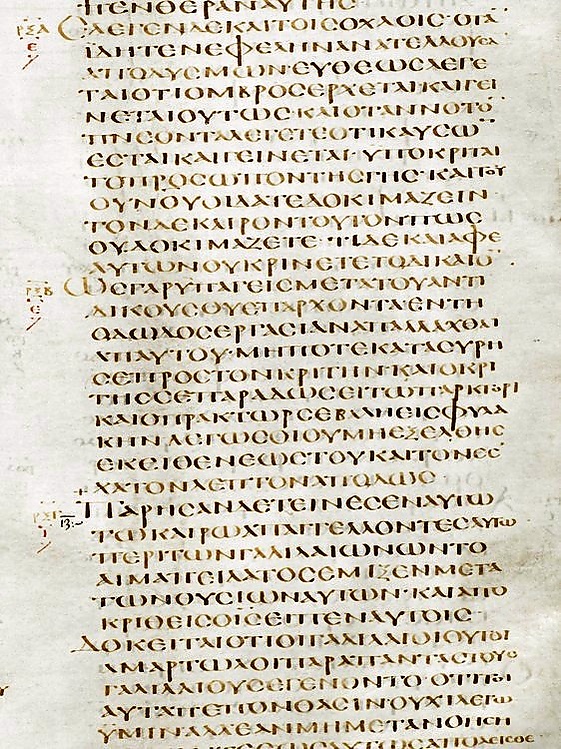 ΠΕΝΘΕΡΑΝΑΥΤΗΣ
ΡΞΑ ΕΛΕΓΕΝΔΕΚΑΙΤΟΙΣΟΧΛΟΙΣ·ΟΤΑ
Ε ΪΔΗΤΕΝΕΦΕΛΗΝΑΝΑΤΕΛΛΟΥΣΑ
ΑΠΟΔΥΣΜΩΝ·ΕΥΘΕΩΣΛΕΓΕ
ΤΑΙΟΤΙΟΜΒΡΟΣΕΡΧΕΤΑΙ·ΚΑΙΓΕΙ
ΝΕΤΑΙΟΥΤΩΣ·ΚΑΙΟΤΑΝΝΟΤΟ
ΠΝΕΟΝΤΑΛΕΓΕΤΕΟΤΙΚΑΥΣΩ
ΕΣΤΑΙΚΑΙΓΕΙΝΕΤΑΙ·ΥΠΟΚΡΙΤΑΙ
ΤΟΠΡΟΣΩΠΟΝΤΗΣΓΗΣ·ΚΑΙΤΟΥ
ΟΥΝΟΥΟΙΔΑΤΕΔΟΚΙΜΑΖΕΙΝ
ΤΟΝΔΕΚΑΙΡΟΝΤΟΥΤΟΝΠΩΣ
ΟΥΔΟΚΙΜΑΖΕΤΕ·ΤΙΔΕΚΑΙΑΦΕ
ΑΥΤΩΝΟΥΚΡΙΝΕΤΕΤΟΔΙΚΑΙΟ
ΡΞΒ ΩΣΓΑΡΥΠΑΓΕΙΣΜΕΤΑΤΟΥΑΝΤΙ
Ε ΔΙΚΟΥΣΟΥΕΠΑΡΧΟΝΤΑΕΝΤΗ
ΟΔΩΔΟΣΕΡΓΑΣΙΑΝΑΠΑΛΛΑΧΘΑΙ
ΑΠΑΥΤΟΥ·ΜΗΠΟΤΕΚΑΤΑΣΥΡΗ
ΣΕΠΡΟΣΤΟΝΚΡΙΤΗΝ·ΚΑΙΟΚΡΙ
ΤΗΣΣΕΠΑΡΑΔΩΣΕΙΤΩΠΡΑΚΤΟΡΙ
ΚΑΙΟΠΡΑΚΤΩΡΣΕΒΑΛΗΕΙΣΦΥΛΑ
ΚΗΝΛΕΓΩΣΟΙΟΥΜΗΕΞΕΛΘΗΣ
ΕΚΕΙΘΕΝΕΩΣΤΟΥΚΑΙΤΟΝΕΣ
ΧΑΤΟΝΛΕΠΤΟΝΑΠΟΔΩΣ
ΡΞΓ 13:– ΠΑΡΗΣΑΝΔΕΤΕΙΝΕΣΕΝΑΥΤΩ
Ι ΤΩΚΑΙΡΩΑΠΑΓΓΕΛΛΟΝΤΕΣΑΥΤΩ
ΠΕΡΙΤΩΝΓΑΛΙΛΑΙΩΝΩΝΤΟ
ΑΙΜΑΠΕΙΛΑΤΟΣΕΜΙΞΕΝΜΕΤΑ
ΤΩΝΘΥΣΙΩΝΑΥΤΩΝ·ΚΑΙΑΠΟ
ΚΡΙΘΕΙΣΟΙΣΕΙΠΕΝΑΥΤΟΙΣ
ΔΟΚΕΙΤΑΙΟΤΙΟΙΓΑΛΙΛΑΙΟΙΟΥΤΟΙ
ΑΜΑΡΤΩΛΟΙΠΑΡΑΠΑΝΤΑΣΤΟΥΣ
ΓΑΛΙΛΑΙΟΥΣΕΓΕΝΟΝΤΟ·ΟΤΙΤΟΙ
ΑΥΤΑΠΕΠΟΝΘΑΣΙΝΟΥΧΙΛΕΓΩ
ΥΜΙΝΑΛΛΕΑΝΜΗΜΕΤΑΝΟΗΣΗ